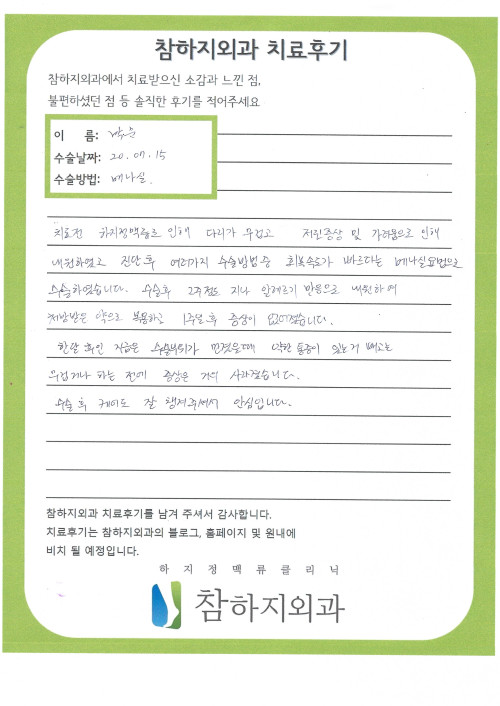 참하지외과 치료후기
참하지외과에서 치료받으신 소감과 느낀 점,
불편하셨던 점 등 솔직한 후기를 적어주세요
이 름:
수술날짜: 20.07.15
수술방법: 베나실.
치료전 하지정맥류로 인해 다리가 무겁고 저린증상 및 가려움으로 인해
내원하였고 진단 후 여러가지 수술방법중 회복속도가 빠르다는 베나실요법으로
수술하였습니다. 수술후 2주정도 지나 알레르기 반응으로 내원하여
처방받은 약으로 복용하고 1주일 후 증상이 없어졌습니다.
한달 후인 지금은 수술부위가 만졌을때 약한 통증이 있는거 빼고는
무겁거나 하는 전에 증상은 거의 사라졌습니다.
수술 후 케어도 잘 챙겨주셔서 안심입니다.
참하지외과 치료후기를 남겨 주셔서 감사합니다.
치료후기는 참하지외과의 블로그, 홈페이지 및 원내에
비치 될 예정입니다.
하지정맥류클리닉
참하지외과